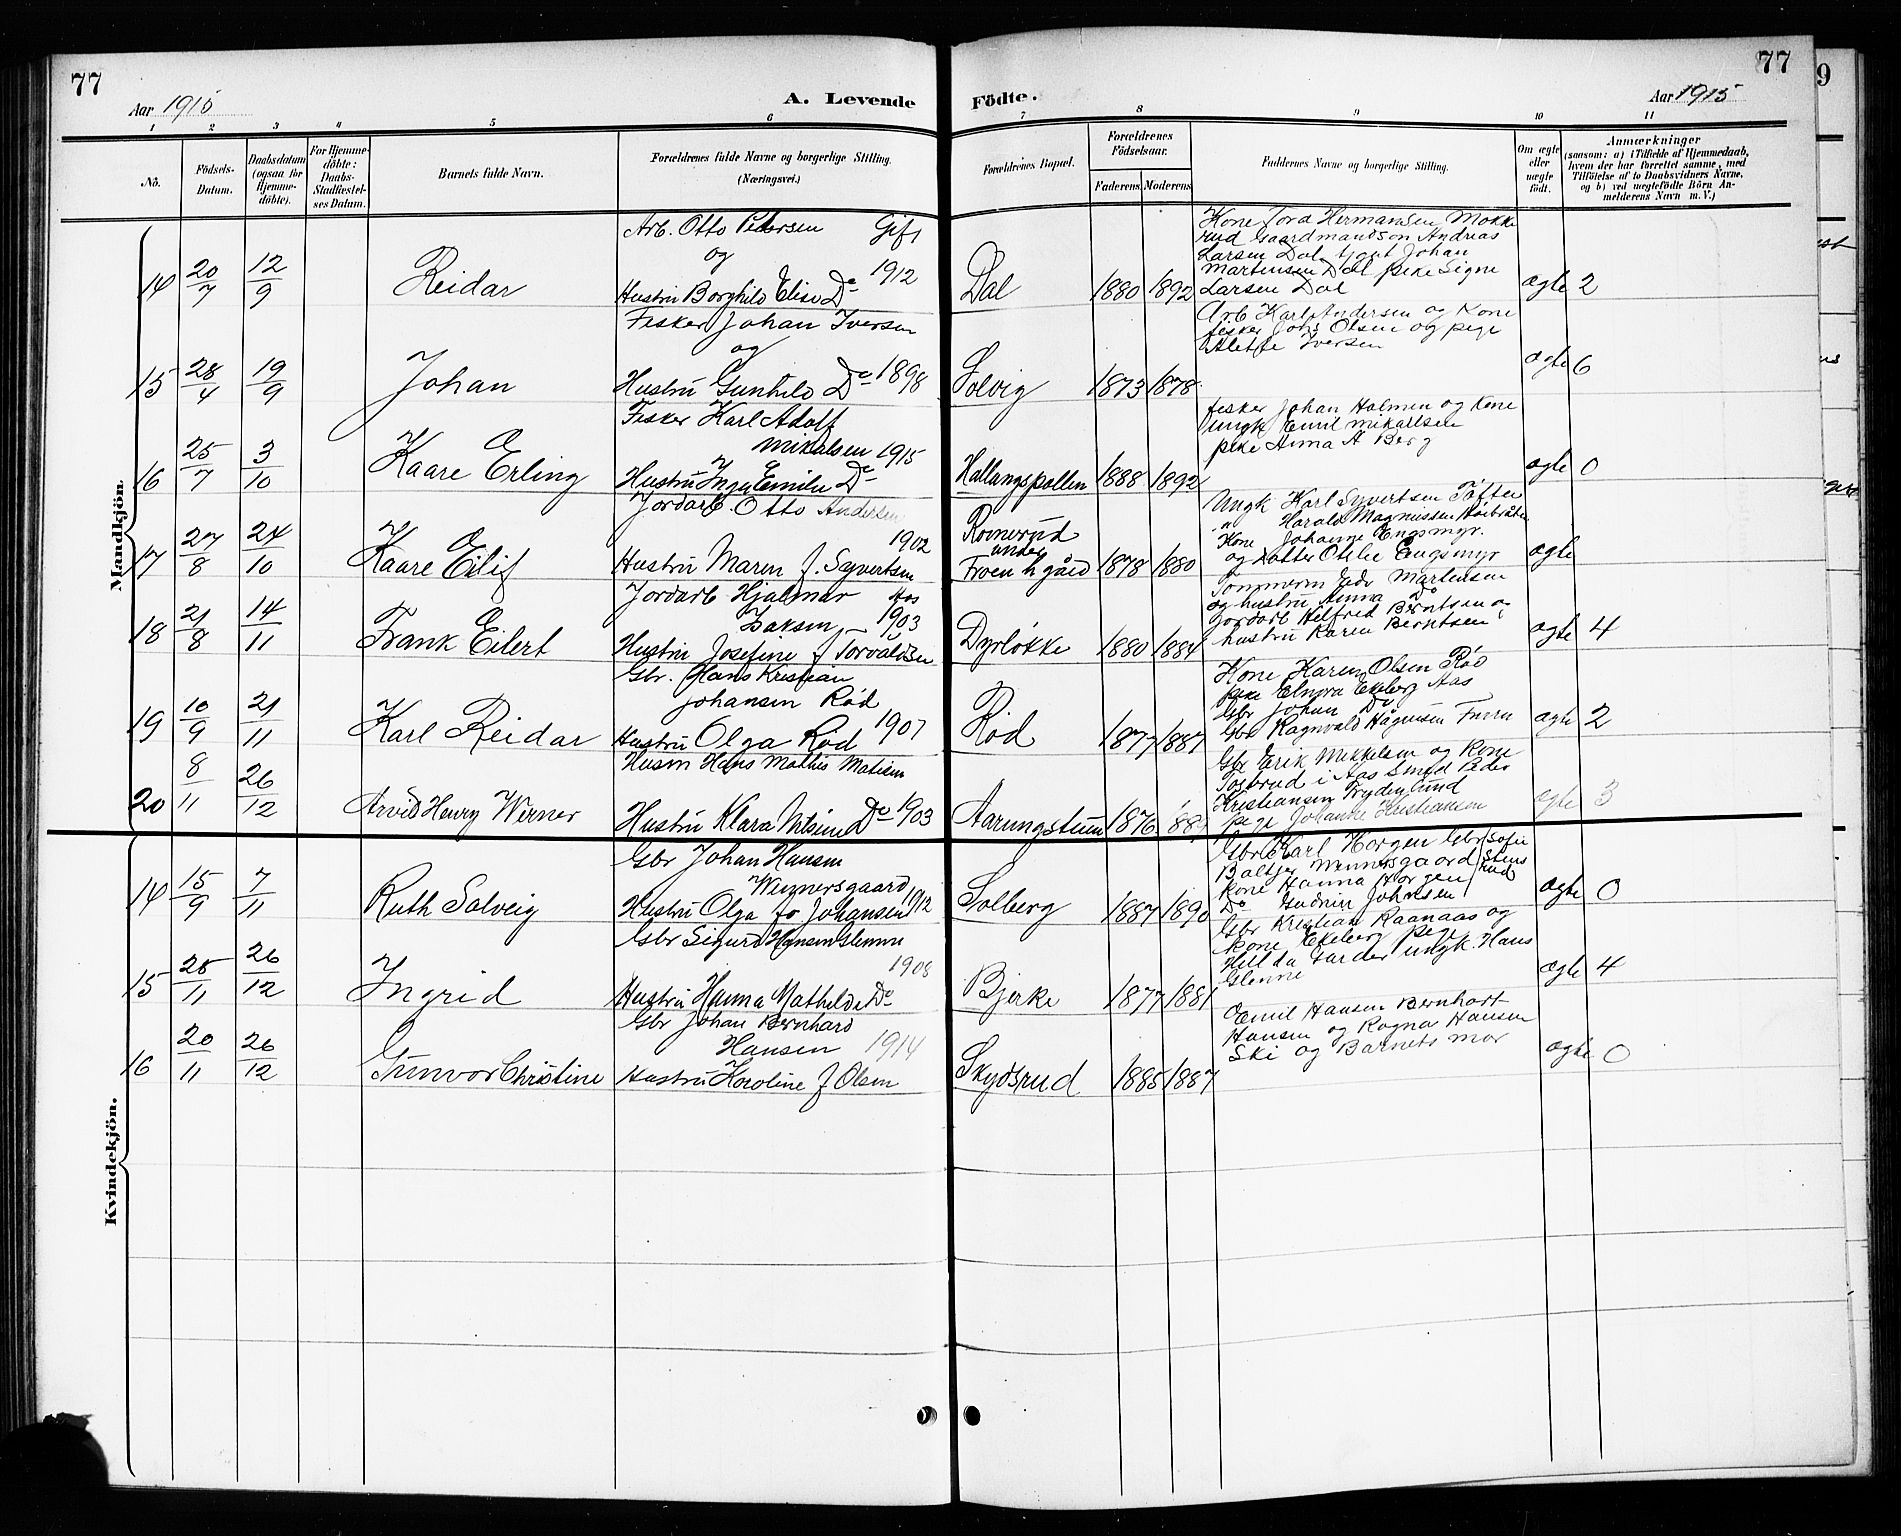 77
Aar 1915
A. Levende
Födte.
77
Aar 1915
9
1 2 3 4 5 6 7 8 9 10 11
No.
Födsels-
Datum.
Daabsdatum
(ogsaa for
Hjemme-
döbte).
For Hjemme-
döbte:
Daabs-
Stadfæstel-
ses Datum.
Barnets fulde Navn.
Forældrenes fulde Navne og borgerlige Stilling.
(Næringsvei.)
Forældrenes Bopæl.
Forældrenes
Födselsaar.
Faderens. Moderens.
Faddernes Navne og borgerlige Stilling.
Om ægte
eller
uægte
födt.
Anmærkninger
(saasom: a) i Tilfælde af Hjemmedaab,
hvem der har forrettet samme, med
Tilföielse af to Daabsvidners Navne,
og b) ved uægtefödte Börn An-
melderens Navn m. V.)
Mandkjön.
14 20/7 12/9 Reidar
Arb. Otto Pedersen Gift
og
Hustru Borghild Elise Do 1912
Dal 1880 1892
Kone Tora Hermansen Mokke
rud Gaardmandson Andreas
Larsen Dal tjent Johan
Martensen Dal pike Signe
Larsen Dal
ægte 2
15 28/4 19/9 Johan
Fisker Johan Iversen
og
Hustru Gunhild Do 1898
Solvig 1873 1878
Arb Karl Andersen og Kone
fisker Johs Olsen og pige
Alette Iversen
ægte 6
16 25/7 3/10 Kaare Erling
Fisker Karl Adolf
Mikalsen 1915
Hustru Inga Emilie Do
Hallangspollen 1888 1892
fisker Johan Holmen og Kone
ungk Emil Mikallsen
pike Anna A Berg
ægte 0
17 27/8 24/10 Kaare Eilif
Jordarb. Otto Andersen
1902
Hustru Maren f. Syvertsen
Rovnerud
under
Froen h gård 1878 1880
Ungk Karl Syvertsen Tofter
" Harald Magnussen
Kone Johanne Engsmyr.
og Datter Otelie Engsmyr
ægte
18 21/8 14/11 Frank Eilert
Jordarb Hjalmar Aas
Isaksen 1903
Hustru Josefine f Torvaldsen
Dyrløkke 1880 1884
Tømmerm Edv Martensen
og hustru Anna Do
jordarb Helfred Berntsen og
hustru Karen Berntsen
ægte 4
19 10/9 21/11 Karl Reidar
Gbr. Hans Kristian
Johansen Rød
Hustru Olga Rød 1907
Rød 1877 1887
Kone Karen Olsen Rød
pike Elnora Ekeberg Aas
Gbr Johan Do
Gbr Ragnvald Hågensen
ægte 2
20 8/11 26/12 Arvid Henry Werner
Husm Hans Mathis Matisen
Hustru Klara Nilsine Do 1903
Aarungstuen 1876
Gbr Erik Mikkelsen og Kone
Tosbrud i Aas Smed Peder
Kristiansen Frydenlund
pige Johanne Kristiansen
ægte 3
Kvindekjön.
14 15/9 7/11 Ruth Solveig
Gbr Johan Hansen
Wennersgaard
Hustru Olga fo Johansen 1912
Solberg 1887 1890
Gbr Karl Horgen Gbr Sofie
Baltzer Wennersgaard Stens
kone Hanna Horgen rud
Do Gudrun Johnsen
ægte 0
15 25/11 26/12 Ingrid
Gbr Sigurd Hansen Glenne
1908
Hustru Hanna Mathilde Do
Bjerke 1877 1881
Gbr Kristian Raanaas og
kone Ekeberg pige
Hilda Garder ungk. Hans
Glenne
ægte 4
16 20/11 26/12 Gunvor Christine
Gbr Johan Bernhard
Hansen 1914
Hustru Karoline f Olsen
Skydsrud 1885 1887
Emil Hansen Bernhart
Hansen og Ragna Hansen
Ski og Barnets mor
ægte 0